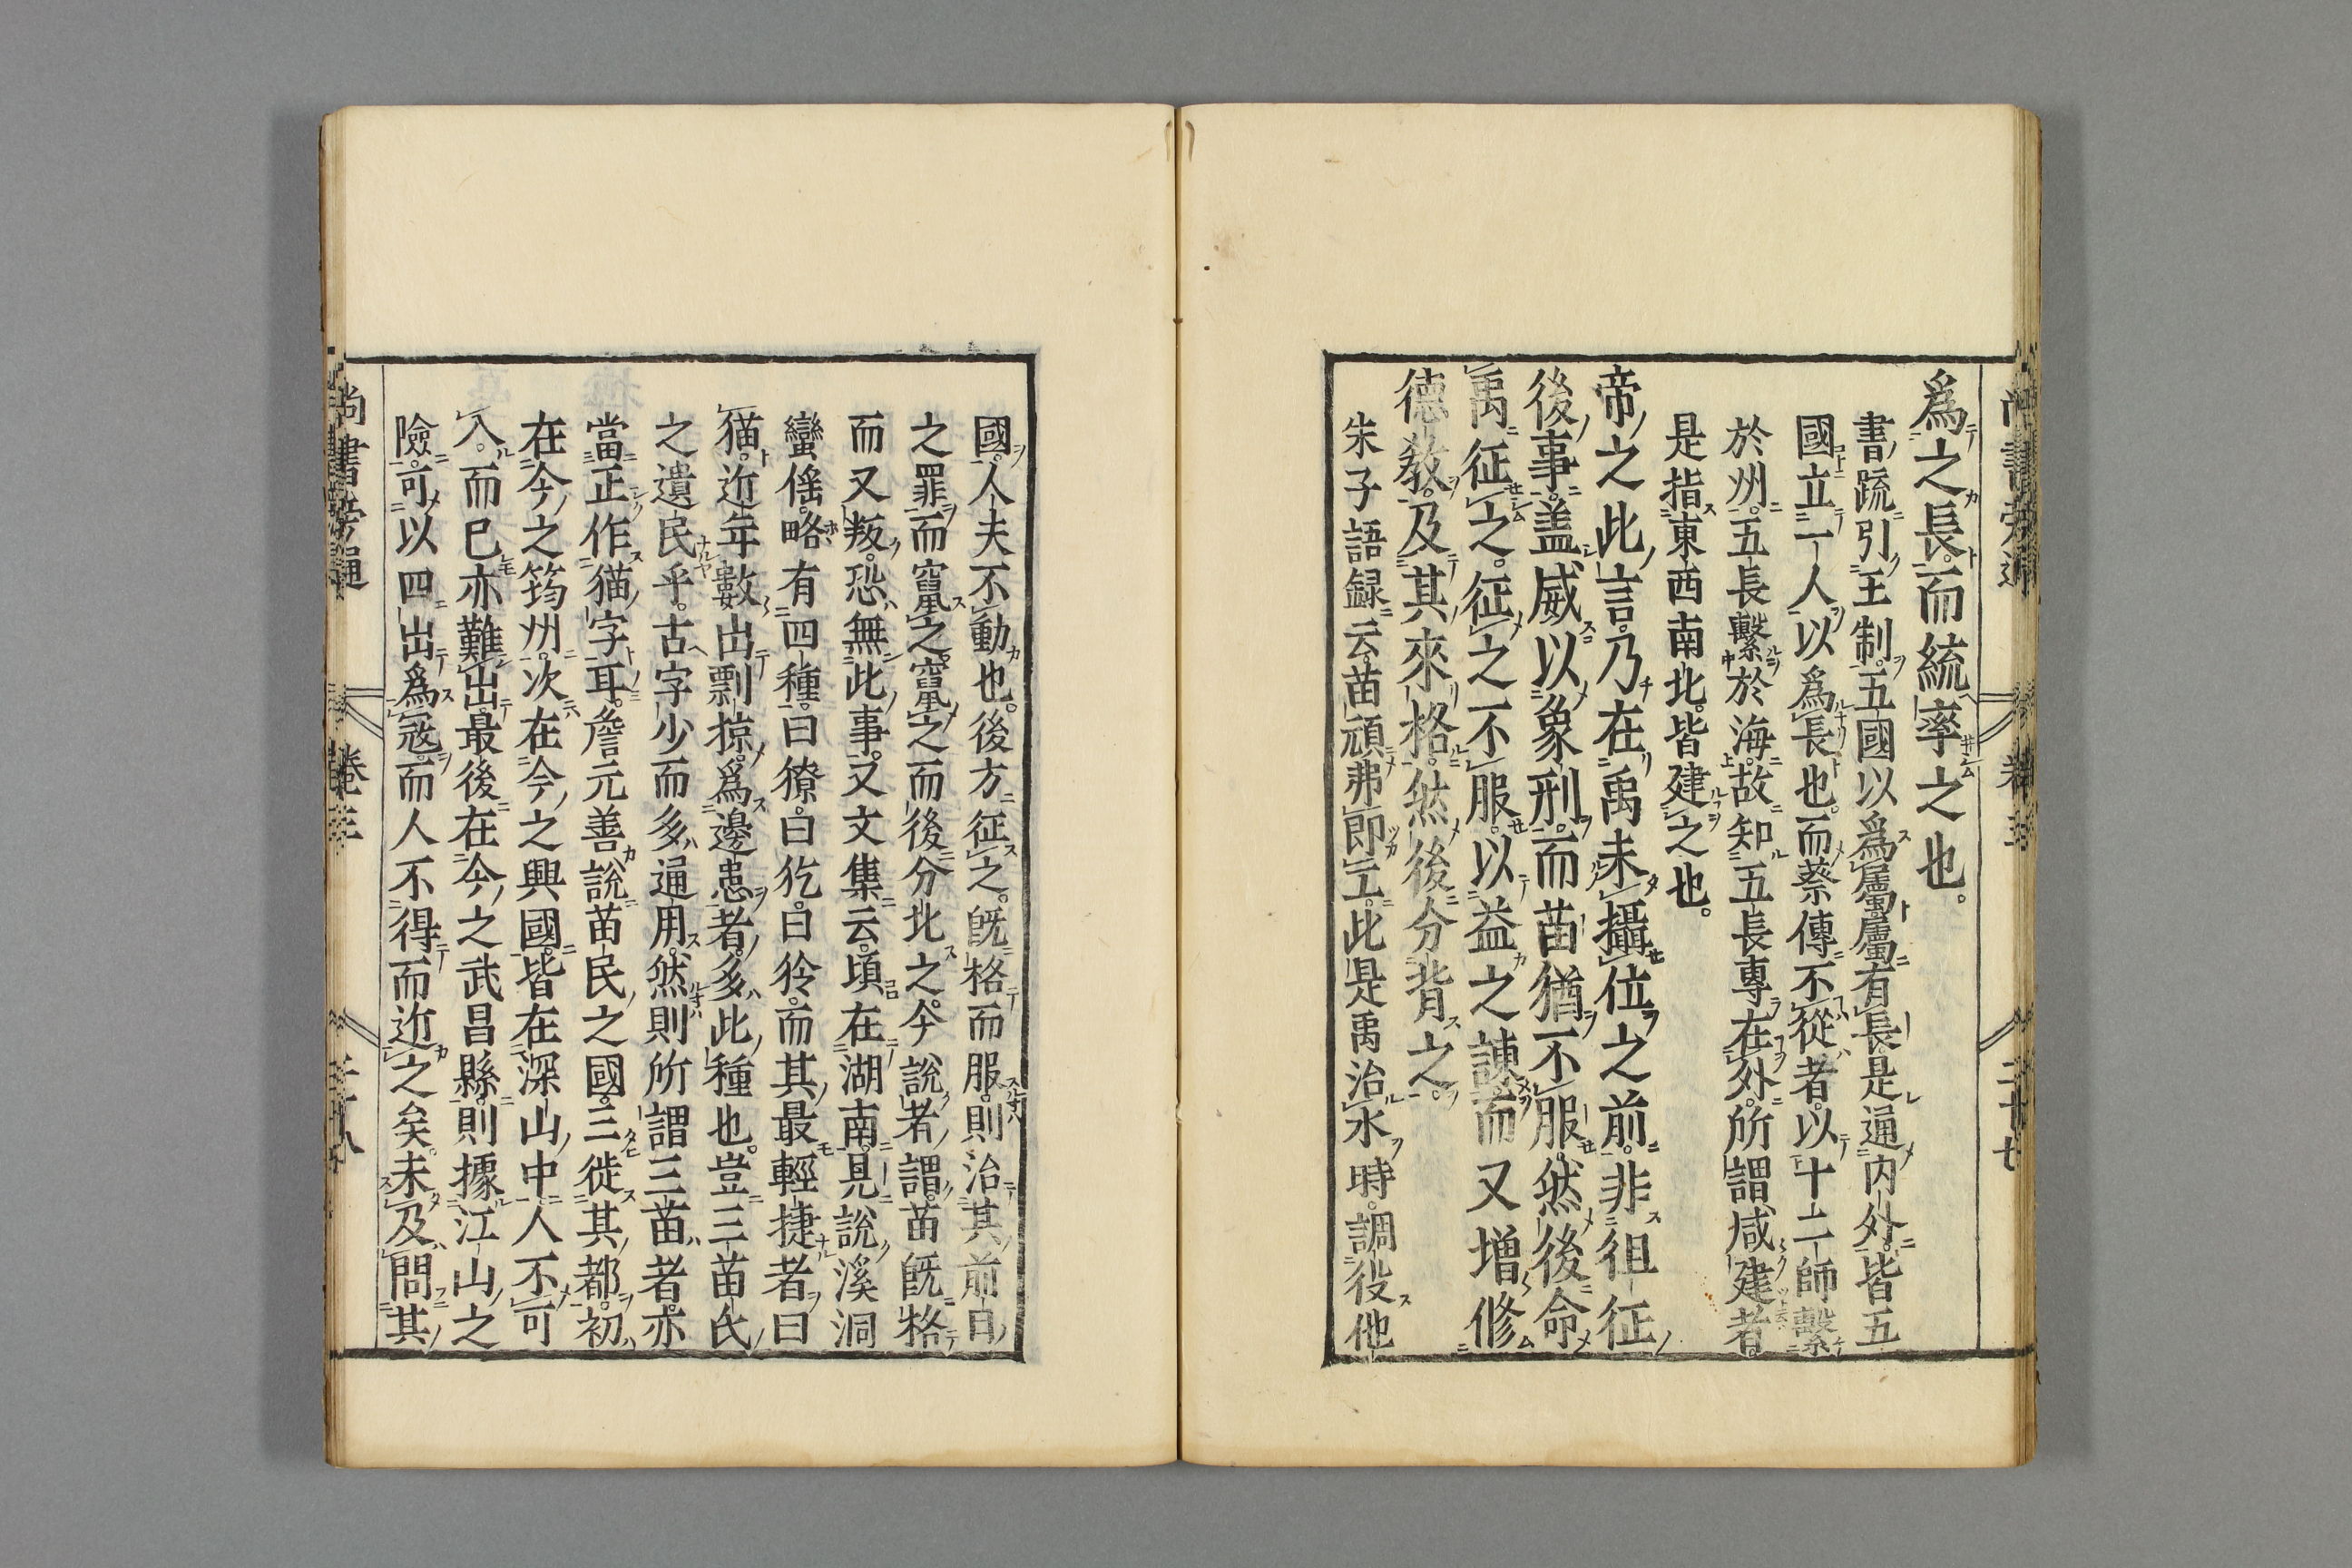 爲之長而統率之也。
書疏引王制。五國以爲屬。屬有長。是通内外。皆五
國立一人以爲長也。而蔡傳不從者。以十二師繫
於州。五長繫於海。故知五長專在外。所謂咸建者。
是指東西南北。皆建之也。
帝之此言。乃在禹未攝位之前。非徂征
後事。盖威以象刑。而苗猶不服。然後命
禹征之。征之不服。以益之諫而又增修
德教。及其來格。然後分背之。
朱子語録云。苗頑弗即工。此是禹治水時。調役他
國人夫不動也。後方征之。既格而服。則治其前日
之罪。而竄之。竄之而後分北之。今説者謂。苗既格
而又叛。恐無此事。又文集云。頃在湖南。見説溪洞
蠻傜。略有四種。曰獠。曰犵。曰狑。而其最輕捷者曰
猫。近年數出剽掠。爲邊患者。多此種也。豈三苗氏
之遺民乎。古字少而多通用。然則所謂三苗者。亦
當正作猫字耳。詹元善説苗民之國。三徙其都。初
在今之筠州。次在今之興國。皆在深山中。人不可
入。而已亦難出。最後在今之武昌縣。則據江山之
險。可以四出爲寇。而人不得而近之矣。未及問其
尚書旁通
卷三